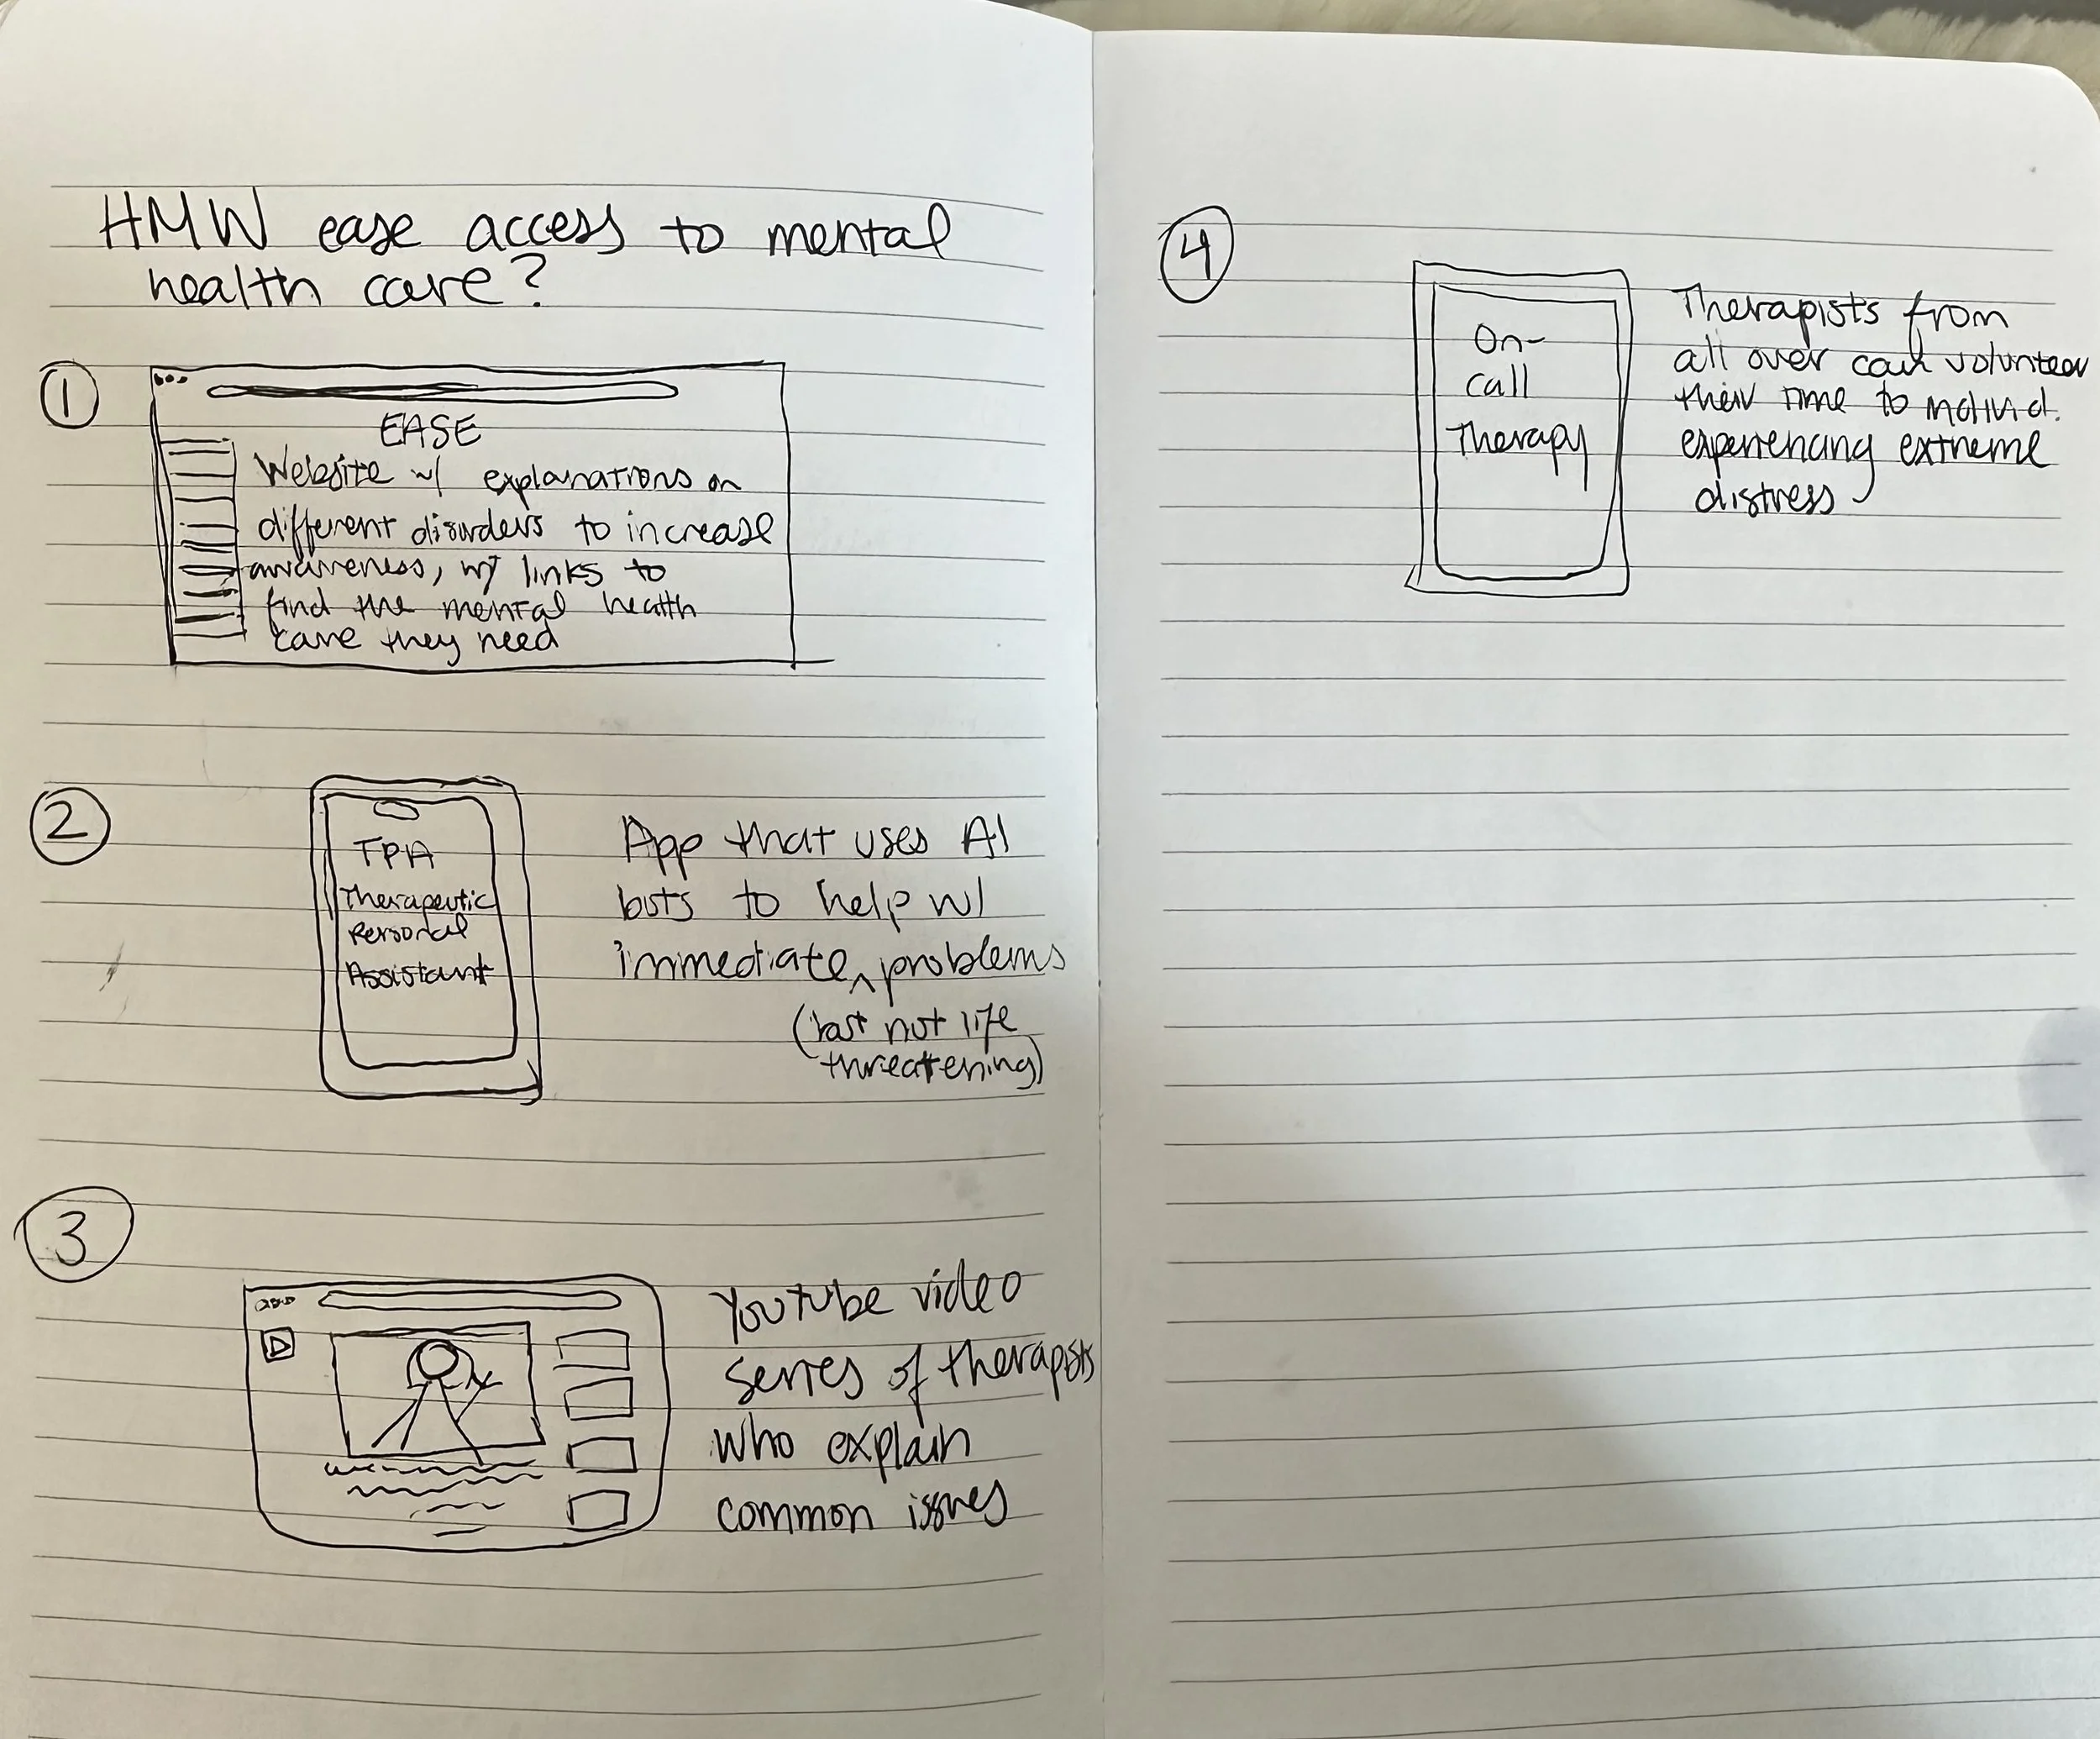 HMW ease access to mental
health care?
1
EASE
Website w/ explanations on
different disorders to increase
awareness, w/ links to
find the mental health
care they need
2
TPA
Therapeutic
Personal
Assistant
App that uses AI
bots to help w/
immediate ^ problems
(not life
threatening)
3
Youtube video
series of therapists
who explain
common issues
4
On-
call
Therapy
Therapists from
all over can volunteer
their time to individ.
experiencing extreme
distress